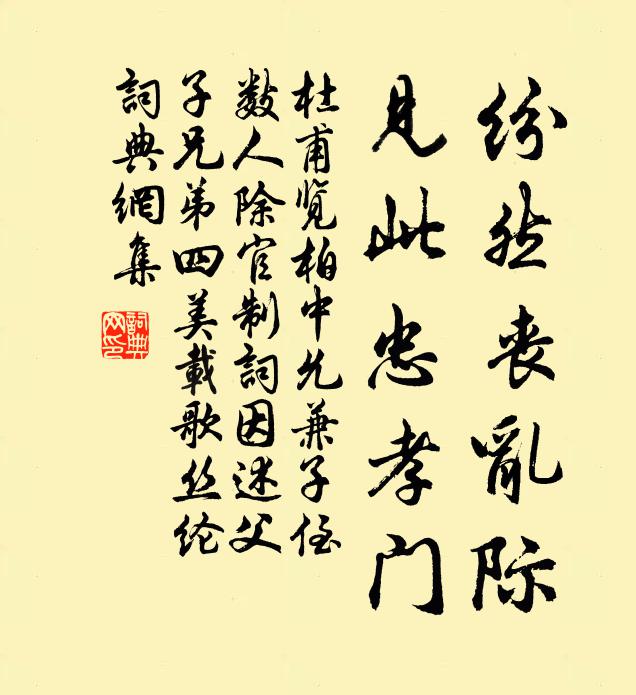 纷然丧亂际
見此忠孝门
杜甫览柏中允兼子侄
数人除官制詞因述父
子兄弟四美載歌丝纶
詞典網集
詞典网印